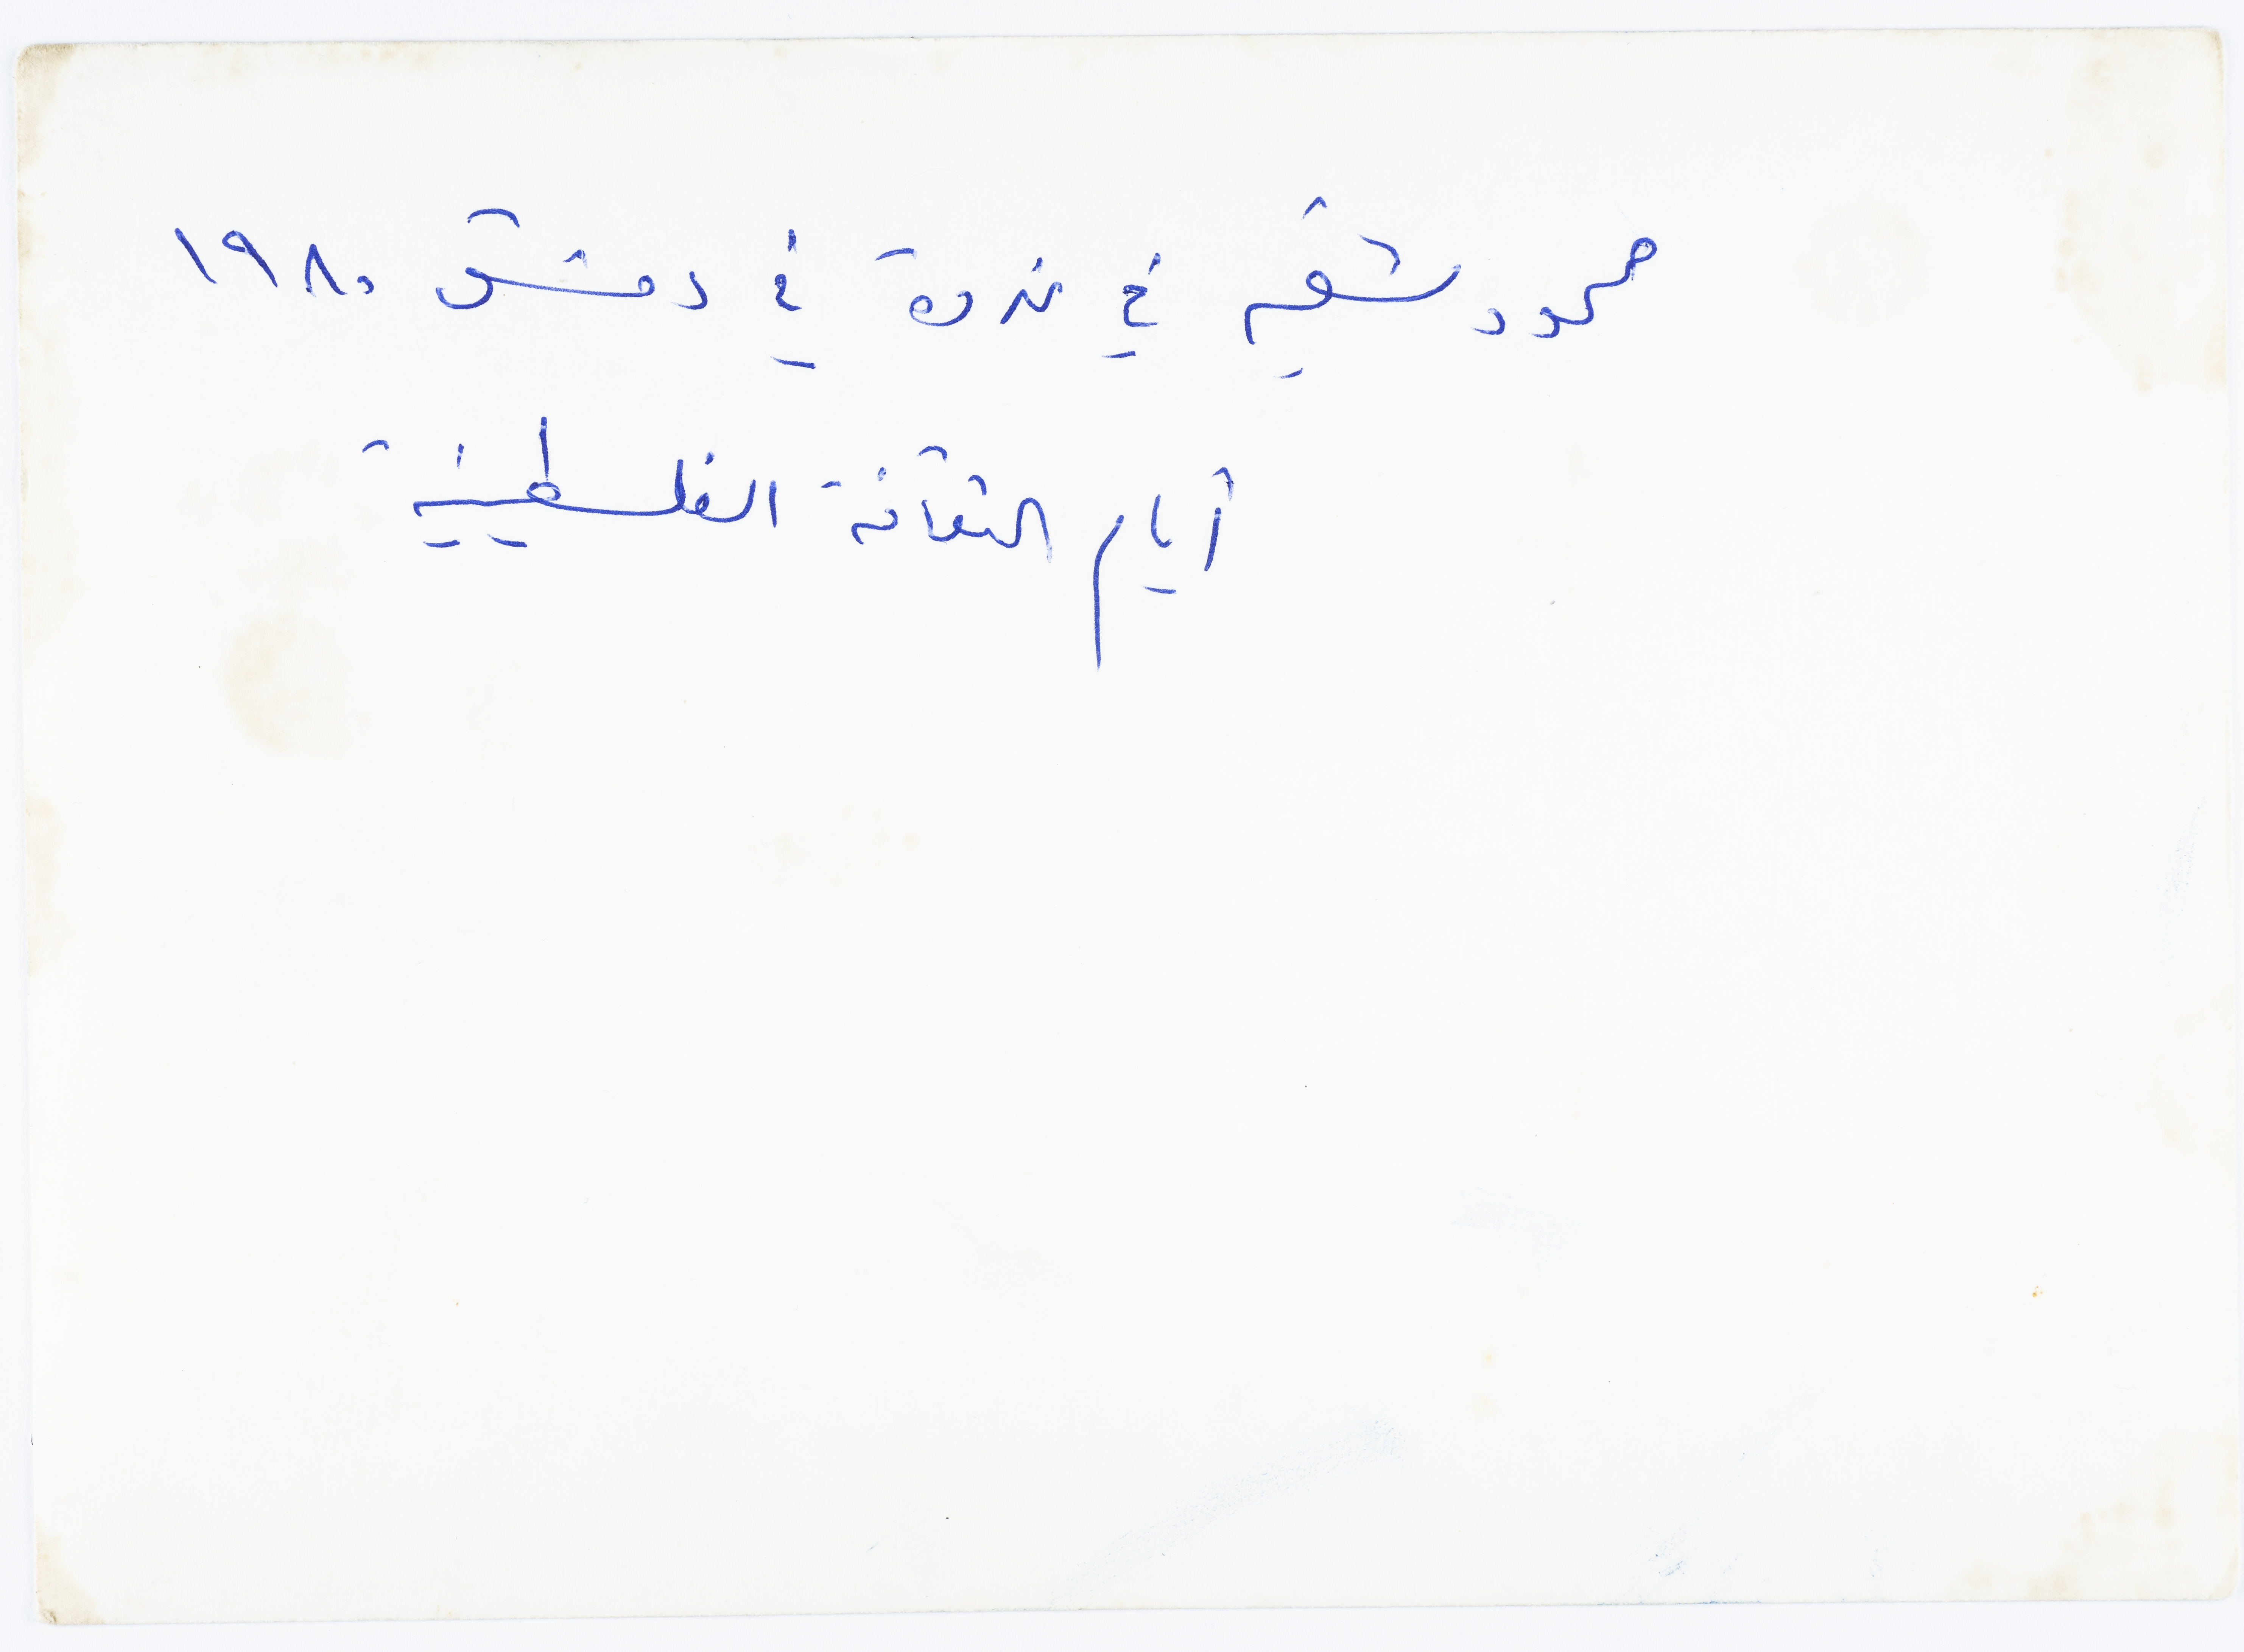 محمود شقير في ندوة في دمشق ١٩٨٠
أيام الثقافة الفلسطينية